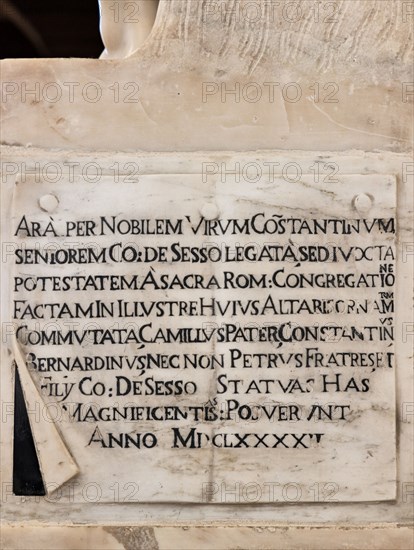 ARÀ PER NOBILEM VIRVM CÕSTANTINVM
SENIOREM CO: DE SESSO LEGATÀ, SED IVXTA
POTESTATEM À SACRA ROM: CONGREGATIONE
FACTAM IN ILLVSTRE HVIVS ALTARIS ORNAM
COMMVTATA, CAMILLVS PATER, CONSTANTINVS
BERNARDINVS, NEC NON PETRVS FRATRES, ET
FILY CO: DE SESSO STATVAS HAS
MAGNIFICENTIS: POSVERVNT
ANNO